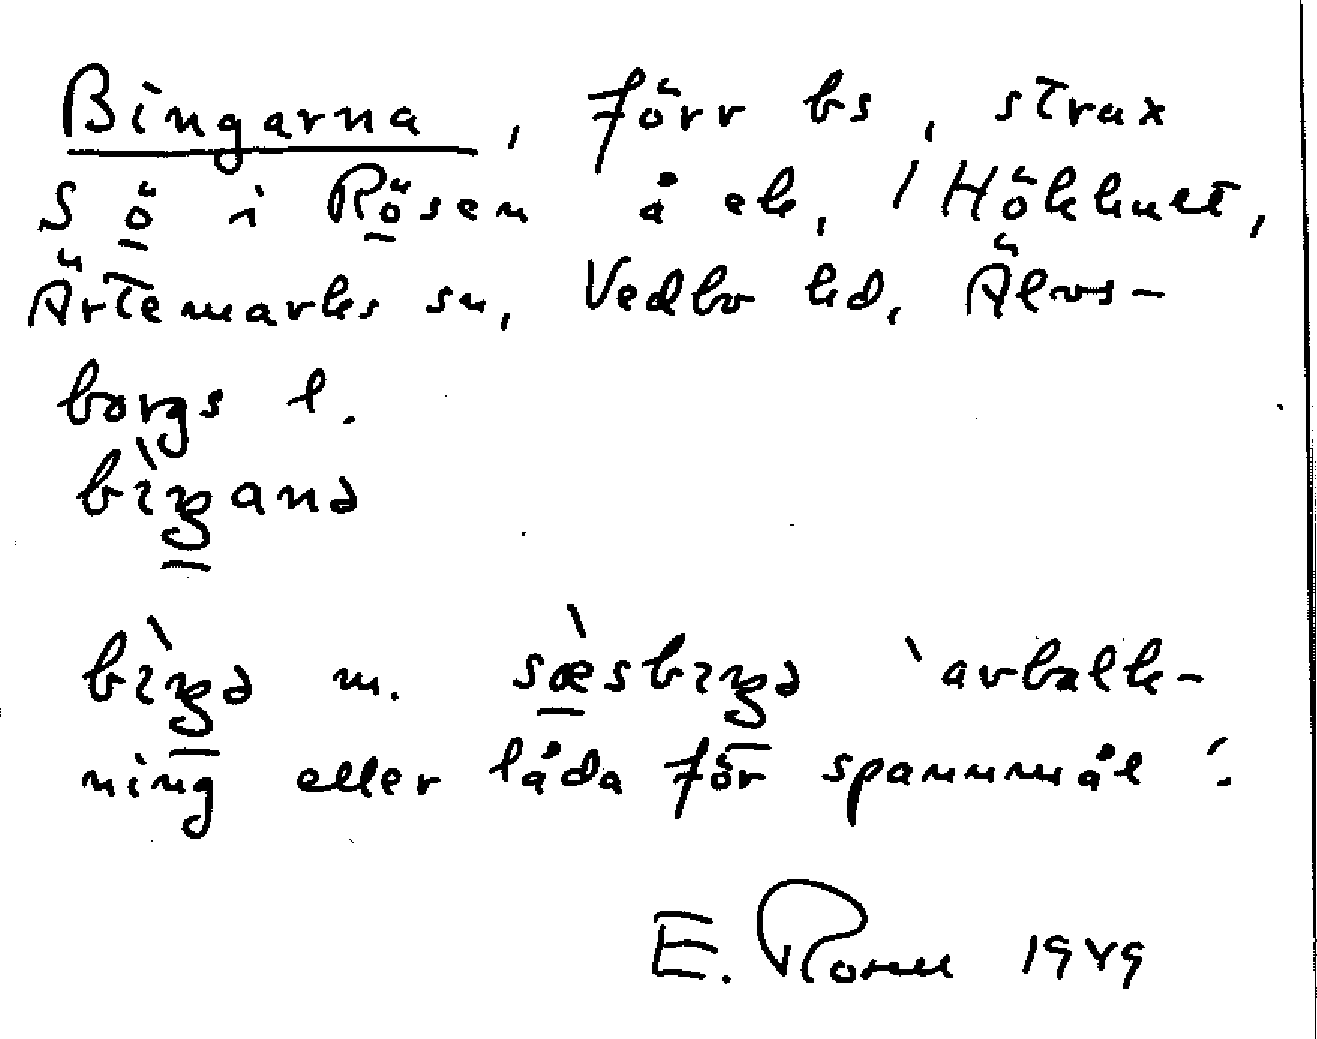 Bingarna, förr bs, strax
S ö i Rösen å ek, 1 Hökhult,
Ärtemarks sn, Vedbo hd, Älvs-
borgs l.
bɩ̀ŋanə
bɩ̀ŋə m. sæ̀sbɩŋə 'avbalk-
ning eller låda för spannmål'.
E. 1949